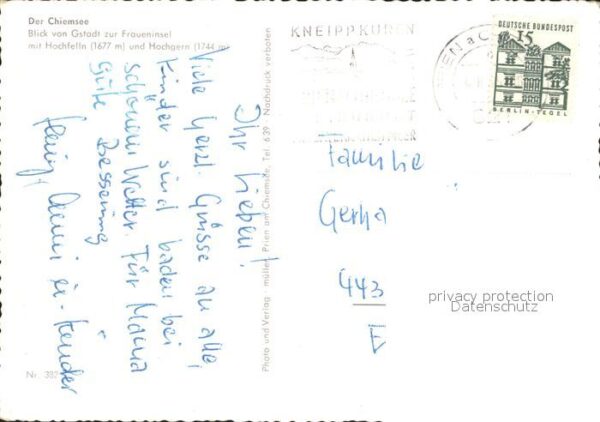 Der Chiemsee
Blick von Gstadt zur Fraueninsel
mit Hochfelln (1677 m) und Hochgern (1744 m)
Ihr Lieben!
Viele herzl. Grüsse an alle,
Kinder sind baden bei
schönem Wetter. Für Mama
Gute Besserung
Anni u. Kinder
Nr. 382
Photo und Verlag müller, Prien am Chiemsee, Tel. 639 Nachdruck verboten
KNEIPPKUREN
DEUTSCHE BUNDESPOST
15
BERLIN-TEGEL
Familie
Gerha
443
privacy protection
Datenschutz